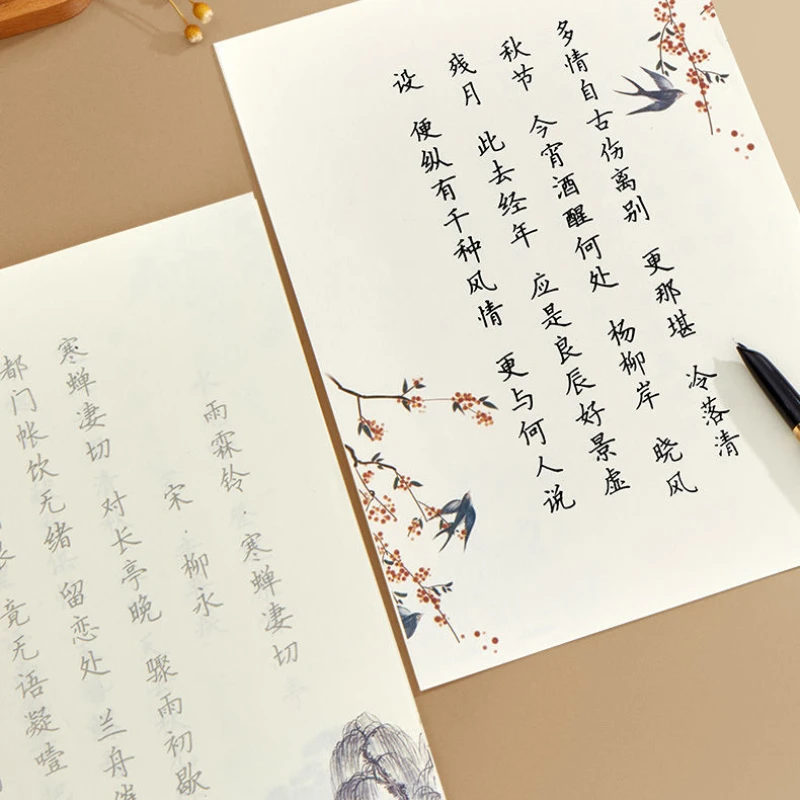 雨霖铃·寒蝉凄切
宋·柳永
寒蝉凄切 对长亭晚 骤雨初歇
都门帐饮无绪 留恋处 兰舟
竟无语凝噎
多情自古伤离别 更那堪 冷落清
秋节 今宵酒醒何处 杨柳岸 晓风
残月 此去经年 应是良辰好景虚
设 便纵有千种风情 更与何人说